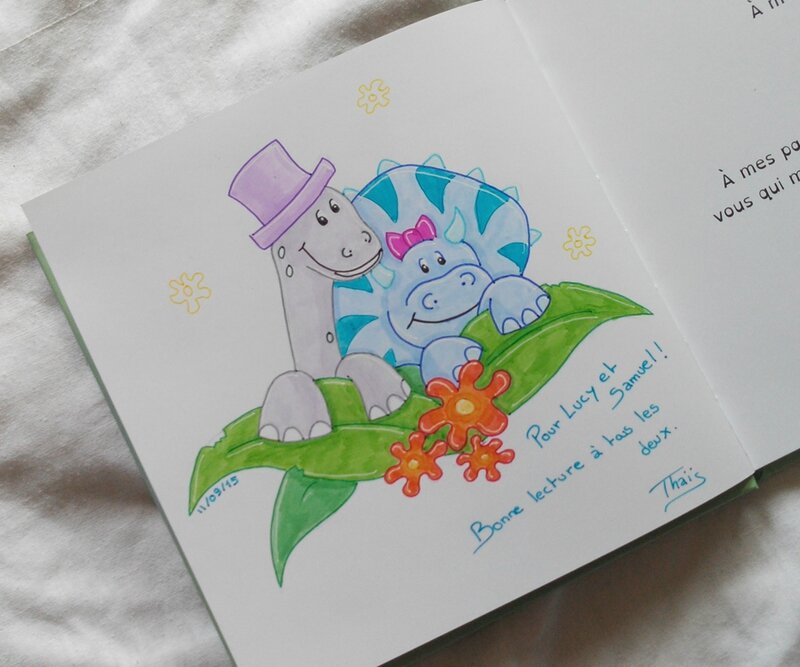 11/09/15
Pour Lucy et
Samuel !
Bonne lecture à tous les
deux.
Thaïs
À m
À mes pa
vous qui m